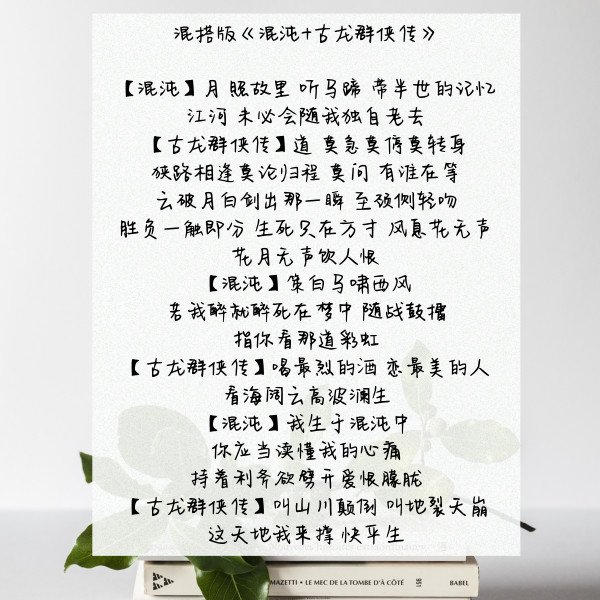 混搭版《混沌+古龙群侠传》
【混沌】月 照故里 听马蹄 带半世的记忆
江河 未必会随我独自老去
【古龙群侠传】道 莫急莫停莫转身
狭路相逢莫论归程 莫问 有谁在等
云破月白剑出那一瞬 至颈侧轻吻
胜负一触即分 生死只在方寸 风息花无声
花月无声饮人恨
【混沌】策白马啸西风
若我醉就醉死在梦中 随战鼓擂
指你看那道彩虹
【古龙群侠传】喝最烈的酒 恋最美的人
看海阔云高波澜生
【混沌】我生于混沌中
你应当读懂我的心痛
持着利斧欲劈开爱恨朦胧
【古龙群侠传】叫山川颠倒 叫地裂天崩
这天地我来撑 快平生
MAZETTI • LE MEC DE LA TOMBE D'À CÔTÉ
BABEL